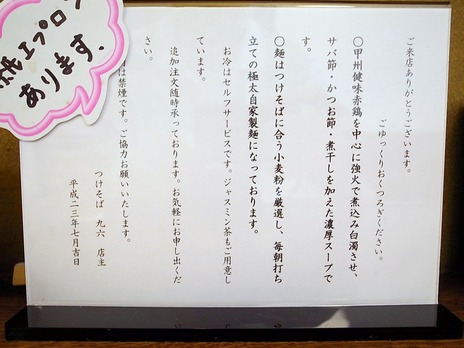 紙エプロン
あります、
ご来店ありがとうございます。
ごゆっくりおくつろぎください。
〇甲州健味赤鶏を中心に強火で煮込み白濁させ、
サバ節・かつお節・煮干しを加えた濃厚スープで
す。
〇麺はつけそばに合う小麦粉を厳選し、毎朝打ち
立ての極太自家製麺になっております。
お冷はセルフサービスです。ジャスミン茶もご用意し
ています。
追加注文随時承っております。お気軽にお申し出くだ
さい。
は禁煙です。ご協力お願いいたします。
つけそば 九六 店主
平成二三年七月吉日